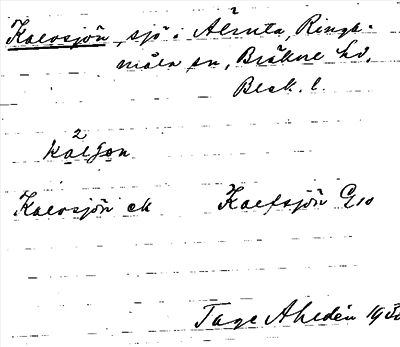 Kalvsjön, sjö i Älmta, Ringa-
måla sn, Bräkne hd,
Blek. l.
2
kalʃon
Kalvsjön ek Kalfsjön G10
Tage Ahldén 193